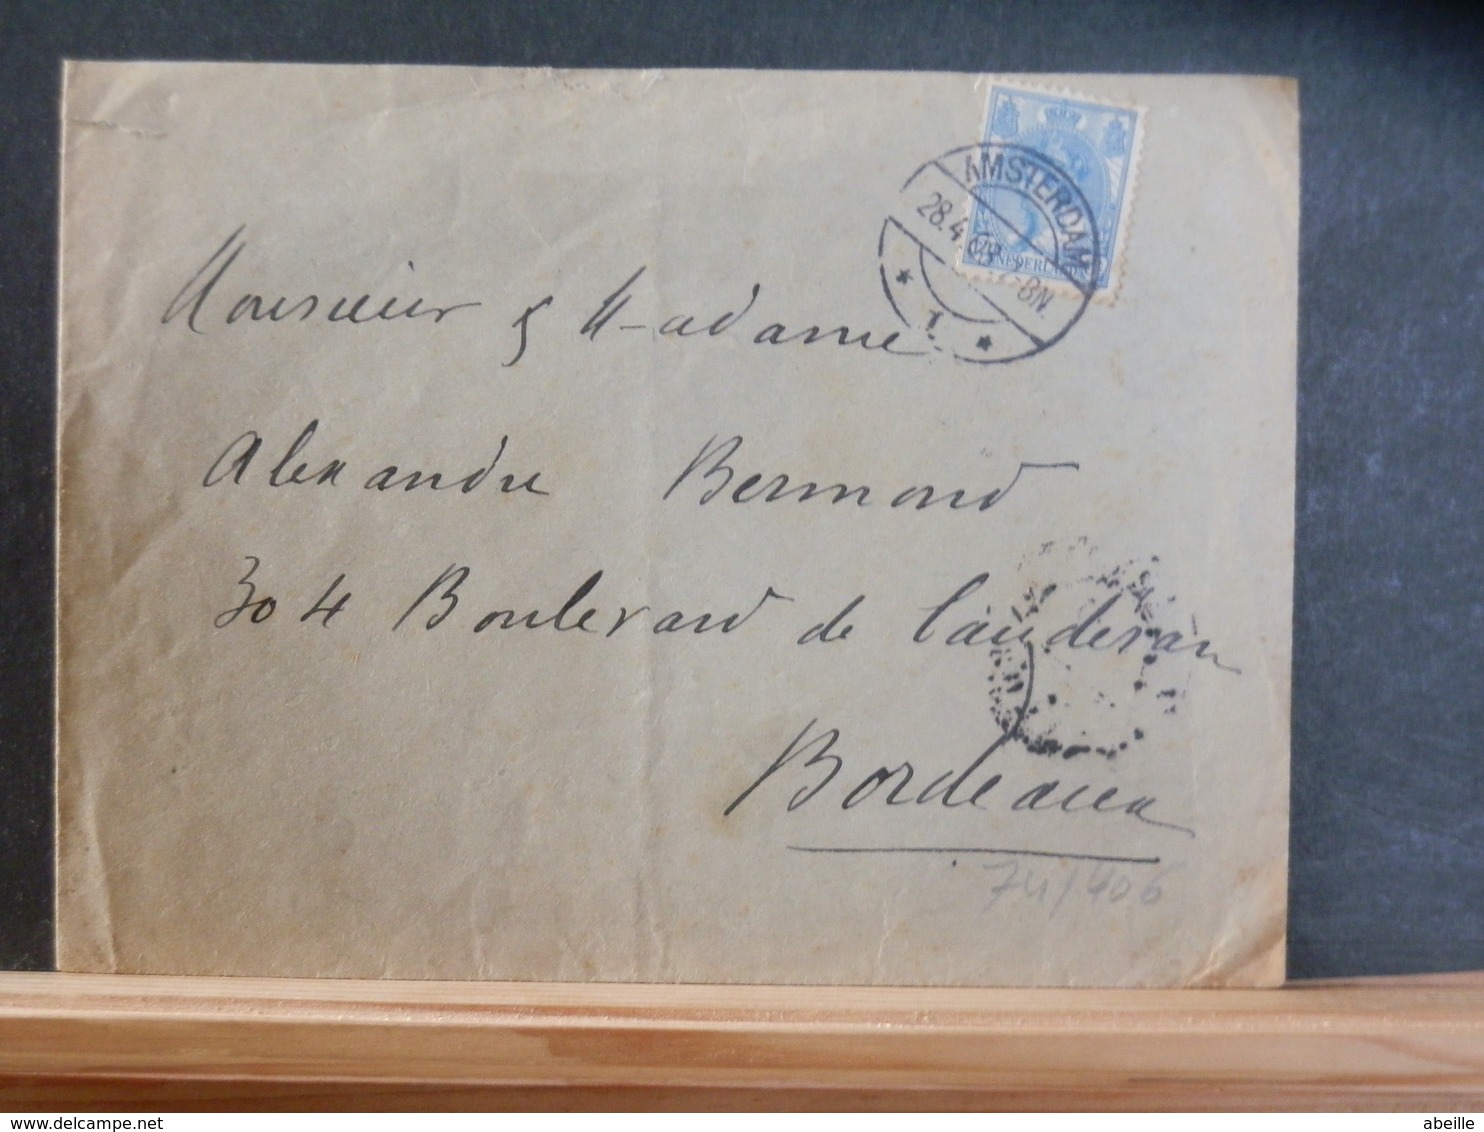 AMSTERDAM
28.4
8N.
1
NEDERLAND
Monsieur & Madame
Alexandre Bermond
304 Boulevard de Cauderan
Bordeaux
74/406
delcampe.net
abeille